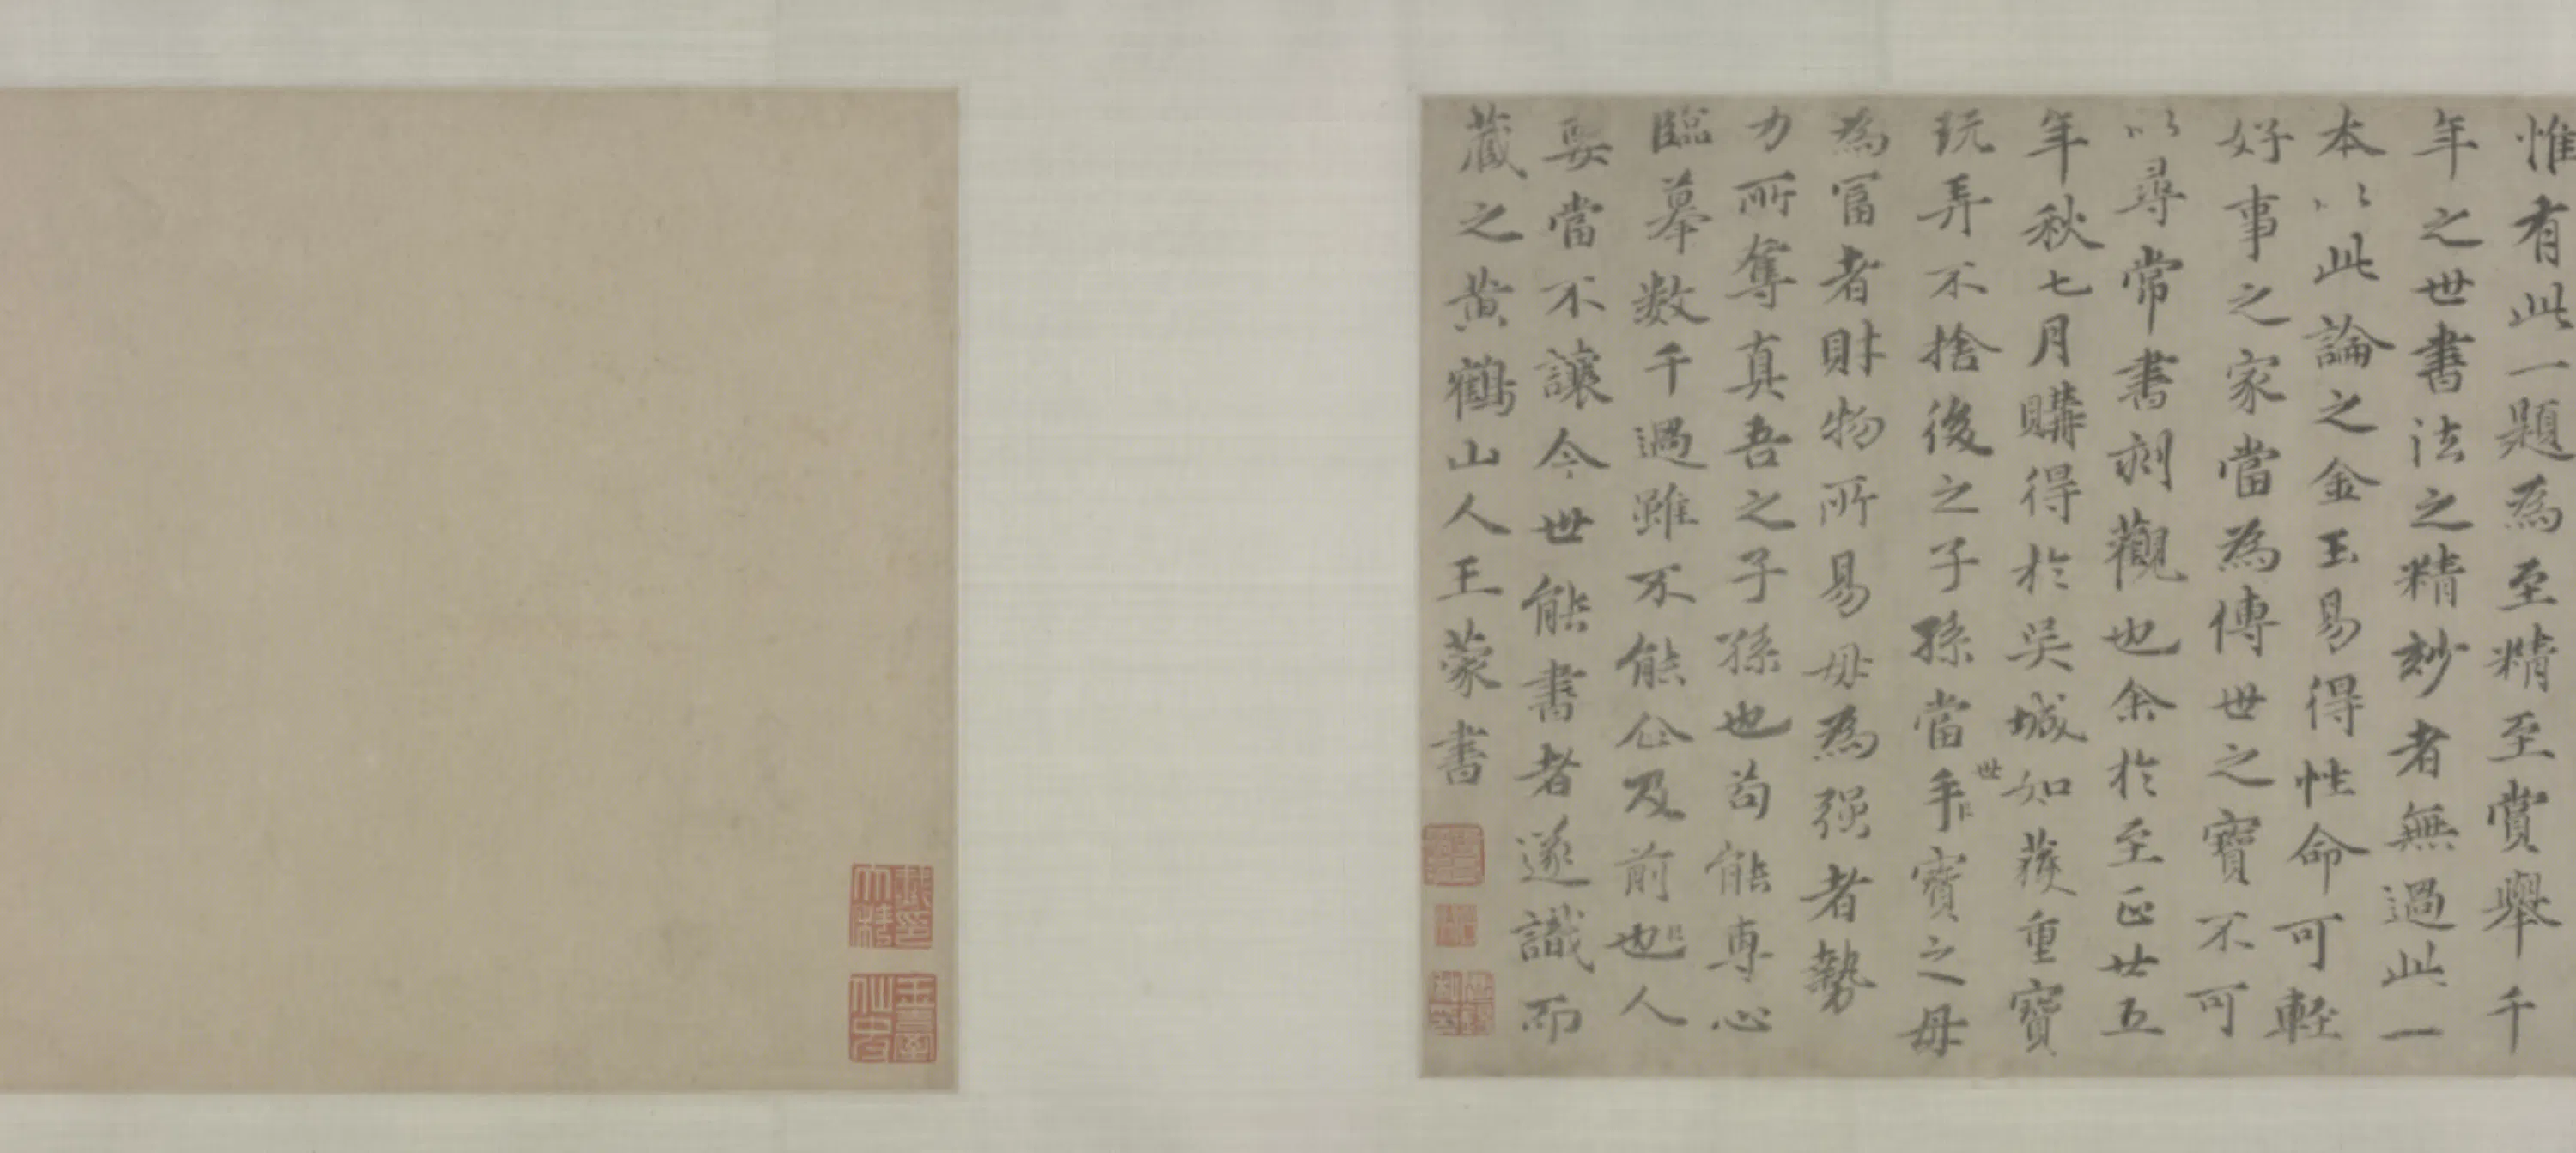 惟有此一題為至精至賞舉千
年之世書法之精妙者無過此一
本以此論之金玉易得性命可輕
好事之家當為傳世之寶不可
以尋常書刻觀也余於至正廿五
年秋七月購得於吳城如獲重寶
玩弄不捨後之子孫當世寶之毋
為富者財物所易毋為强者勢
力所奪真吾之子孫也苟能專心
臨摹數千過雖不能企及前人
要當不讓今世能書者遂識而
藏之黄鶴山人王蒙書